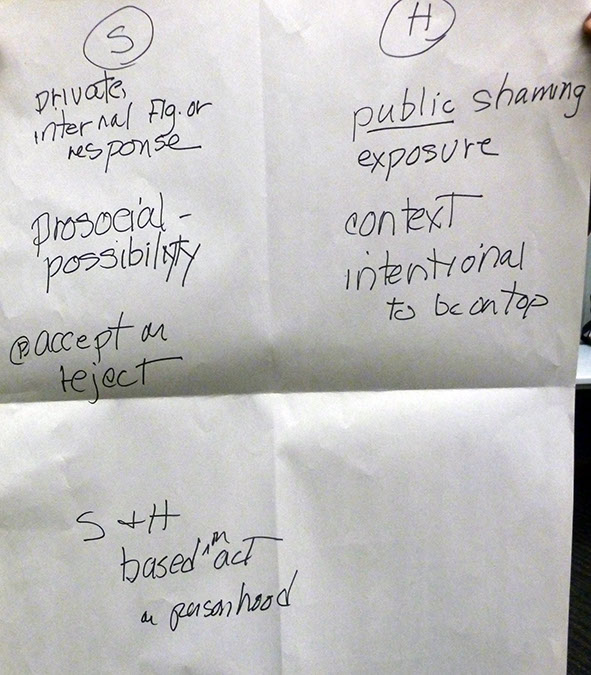 S
private,
internal Fig. or
response
prosocial -
possibility
Ⓟ accept or
reject
H
public shaming
exposure
context
intentional
to be on top
S + H
based in act
or personhood